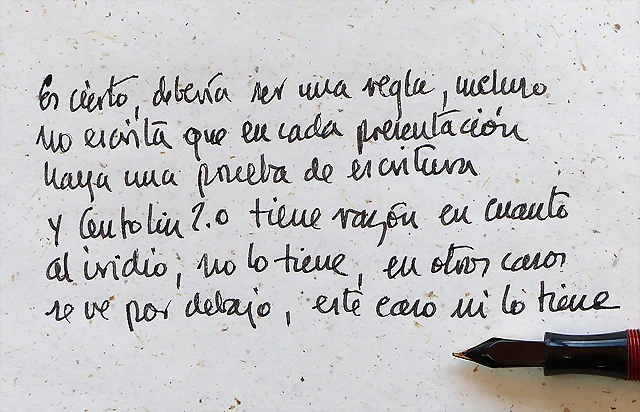 Es cierto, debería ser una regla, incluso
no escrita que en cada presentación
haya una prueba de escritura
y Centolin 2.0 tiene razón en cuanto
al iridio, no lo tiene, en otros casos
se ve por debajo, este caso ni lo tiene